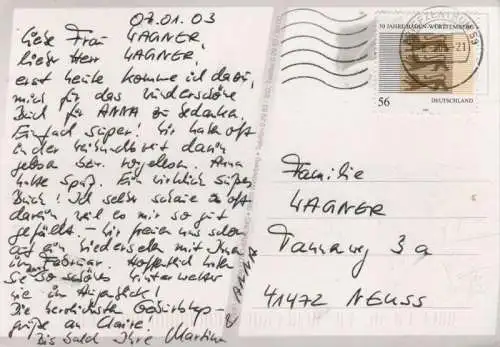 07.01.03
Liebe Frau WAGNER,
lieber Herr WAGNER,
erst heute komme ich dazu,
mich für das wunderschöne
Buch für ANNA zu bedanken.
Einfach super! Wir haben oft
in der Weihnachtszeit darin
gelesen bzw. vorgelesen. Anna
hatte Spaß. Ein wirklich süßes
Buch! Ich selbst schaue oft
darin weil es mir so gut
gefällt. – Wir freuen uns schon
auf ein Wiedersehen mit Ihnen
im Februar. Hoffentlich haben
Sie so schönes Winterwetter
wie im
Die herzlichsten Geburtstags-
grüße an Claire!
Bis bald Ihre Martina
& ANNA
50 JAHRE BADEN-WÜRTTEMBERG
56 DEUTSCHLAND
BRIEFZENTRUM 59
-21
Familie
WAGNER
Tannenweg 3a
41472 NEUSS